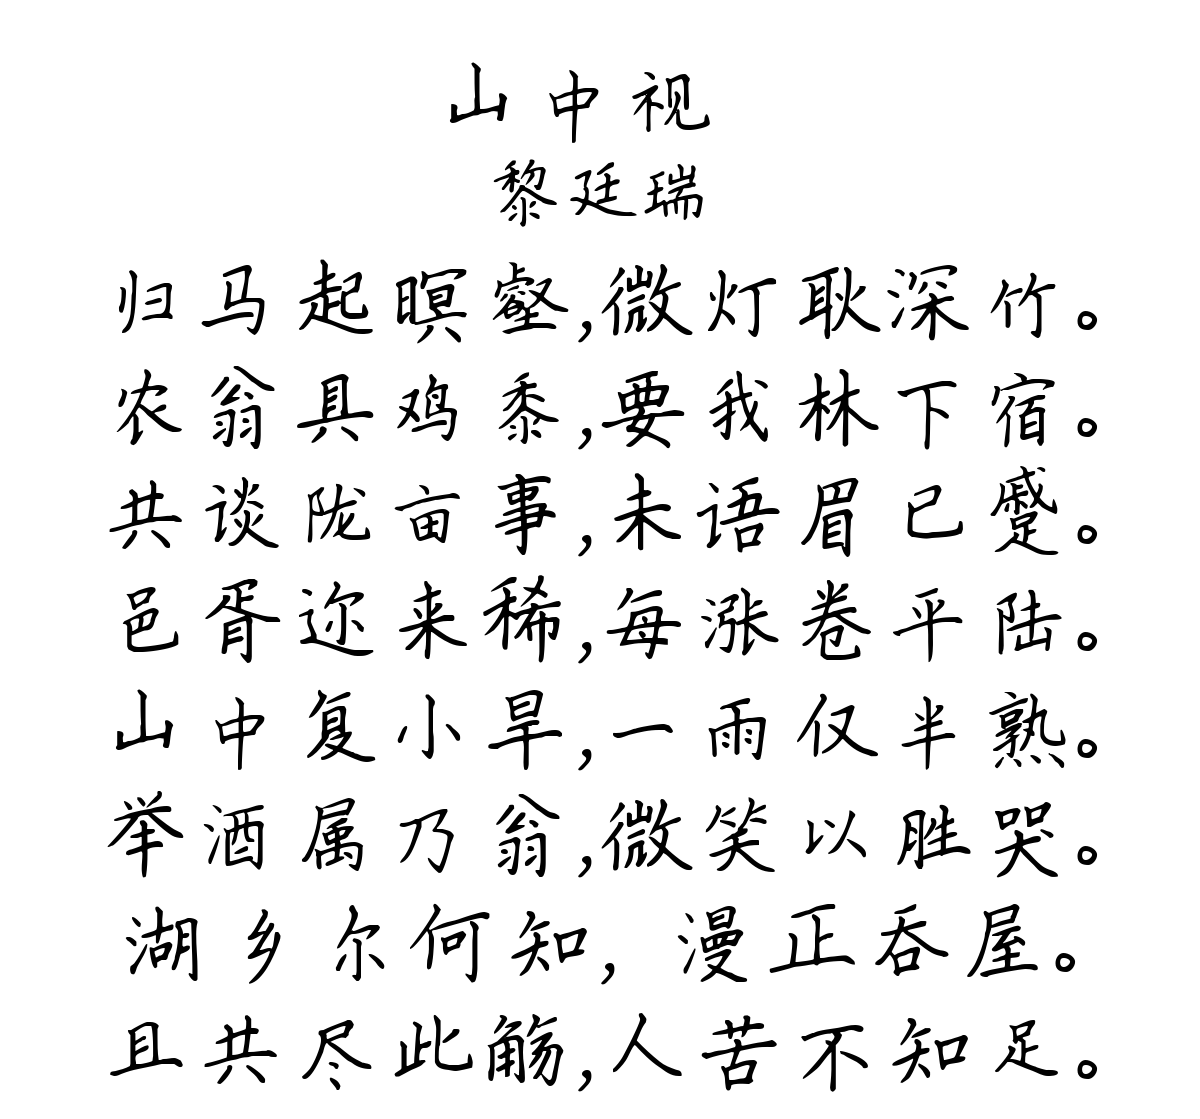 山中视
黎廷瑞
归马起暝壑,微灯耿深竹。
农翁具鸡黍,要我林下宿。
共谈陇亩事,未语眉已蹙。
邑胥迩来稀,每涨卷平陆。
山中复小旱,一雨仅半熟。
举酒属乃翁,微笑以胜哭。
湖乡尔何知,漫正吞屋。
且共尽此觞,人苦不知足。